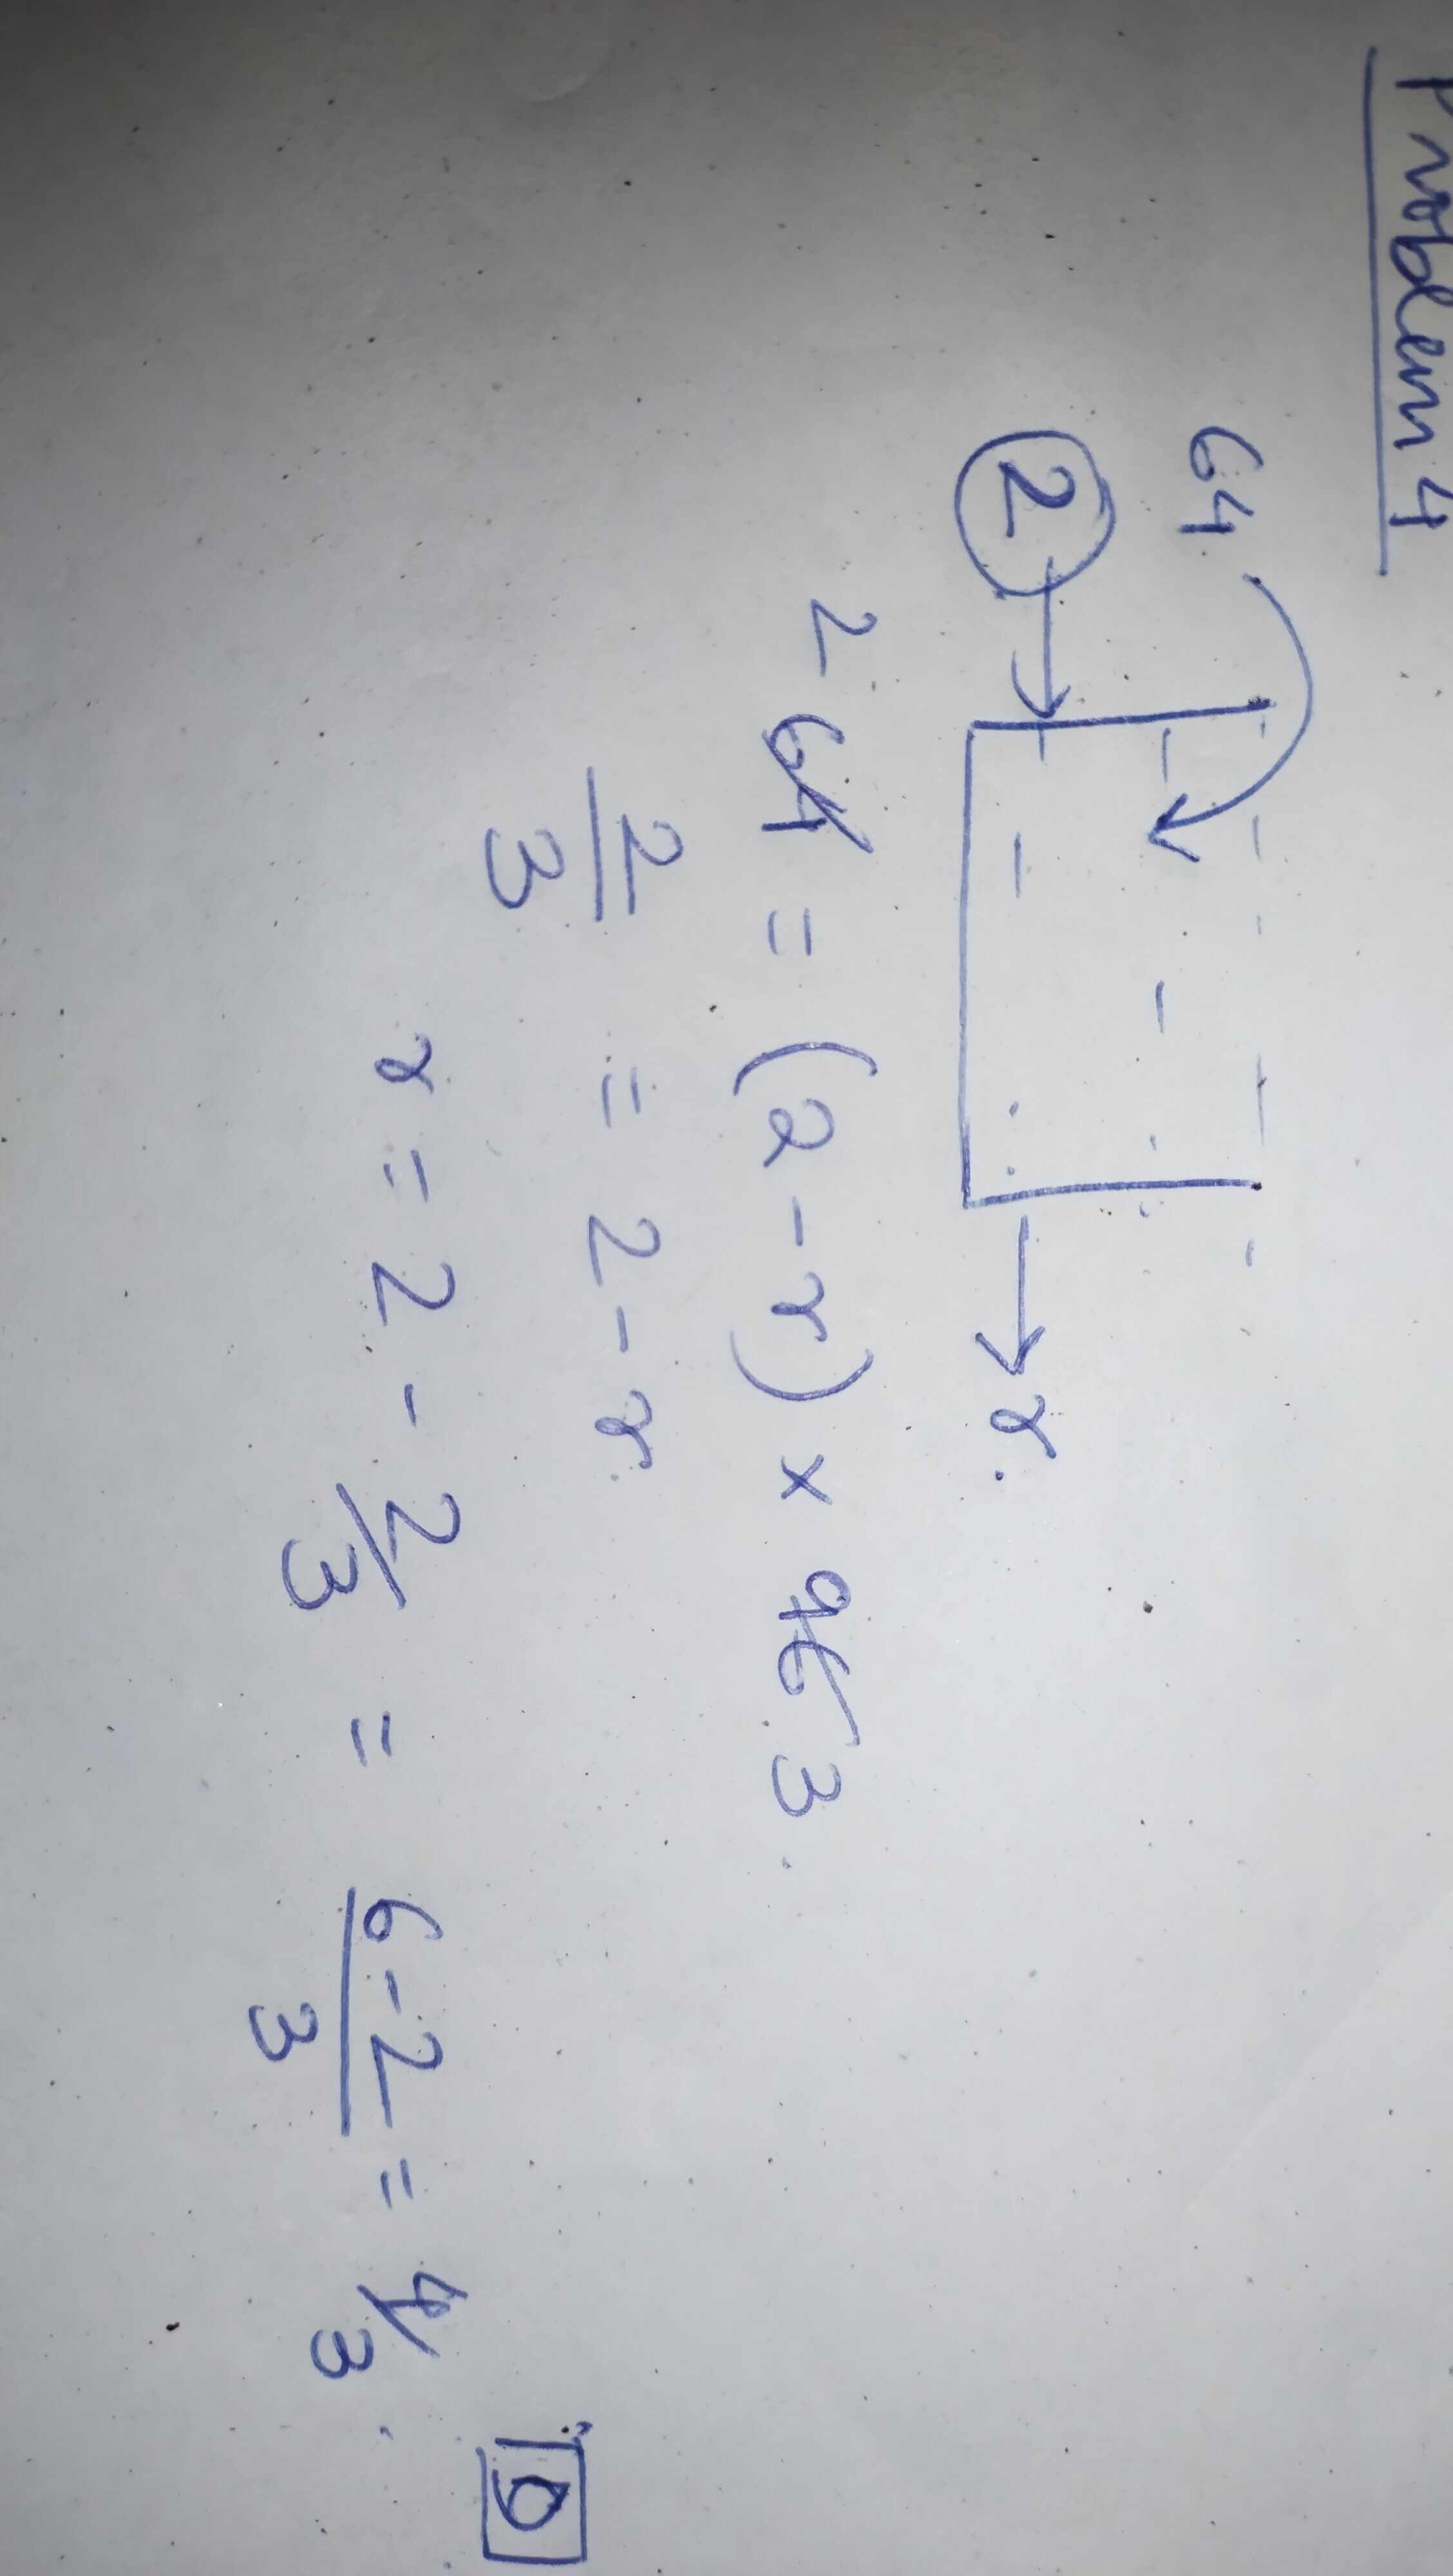 Problem 4
64
2 → r.
2 64 = (2 - r) × 96 3.
2/3 = 2 - r.
r = 2 - 2/3 = (6 - 2)/3 = 4/3.